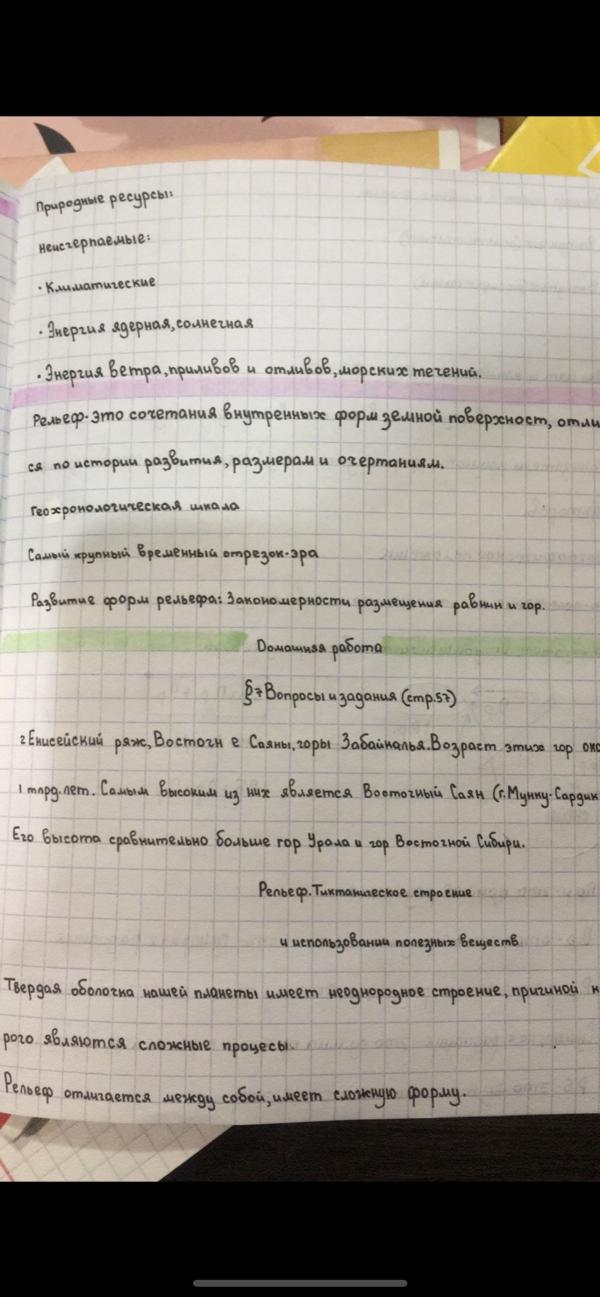 Природные ресурсы:
Неисчерпаемые:
· Климатические
· Энергия ядерная, солнечная
· Энергия ветра, приливов и отливов, морских течений.
Рельеф-это сочетания внутренных форм земной поверхност, отли
ся по истории развития, размерам и очертаниям.
Геохронологическая шкала
Самый крупный временный отрезок-эра
Развитие форм рельефа: Закономерности размещения равнин и гор.
Домашняя работа
§7 Вопросы и задания (стр.57)
2 Енисейский ряж, Восточн е Саяны, горы Забайкалья. Возраст этих гор око
1 млрд. лет. Самым высоким из них является Восточный Саян (г. Мунку-Сардик
Его высота сравнительно больше гор Урала и гор Восточной Сибири.
Рельеф. Тиктаническое строение
и использовании полезных веществ
Твердая оболочка нашей планеты имеет неоднородное строение, причиной к
рого являются сложные процесы.
Рельеф отличается между собой, имеет сложную форму.